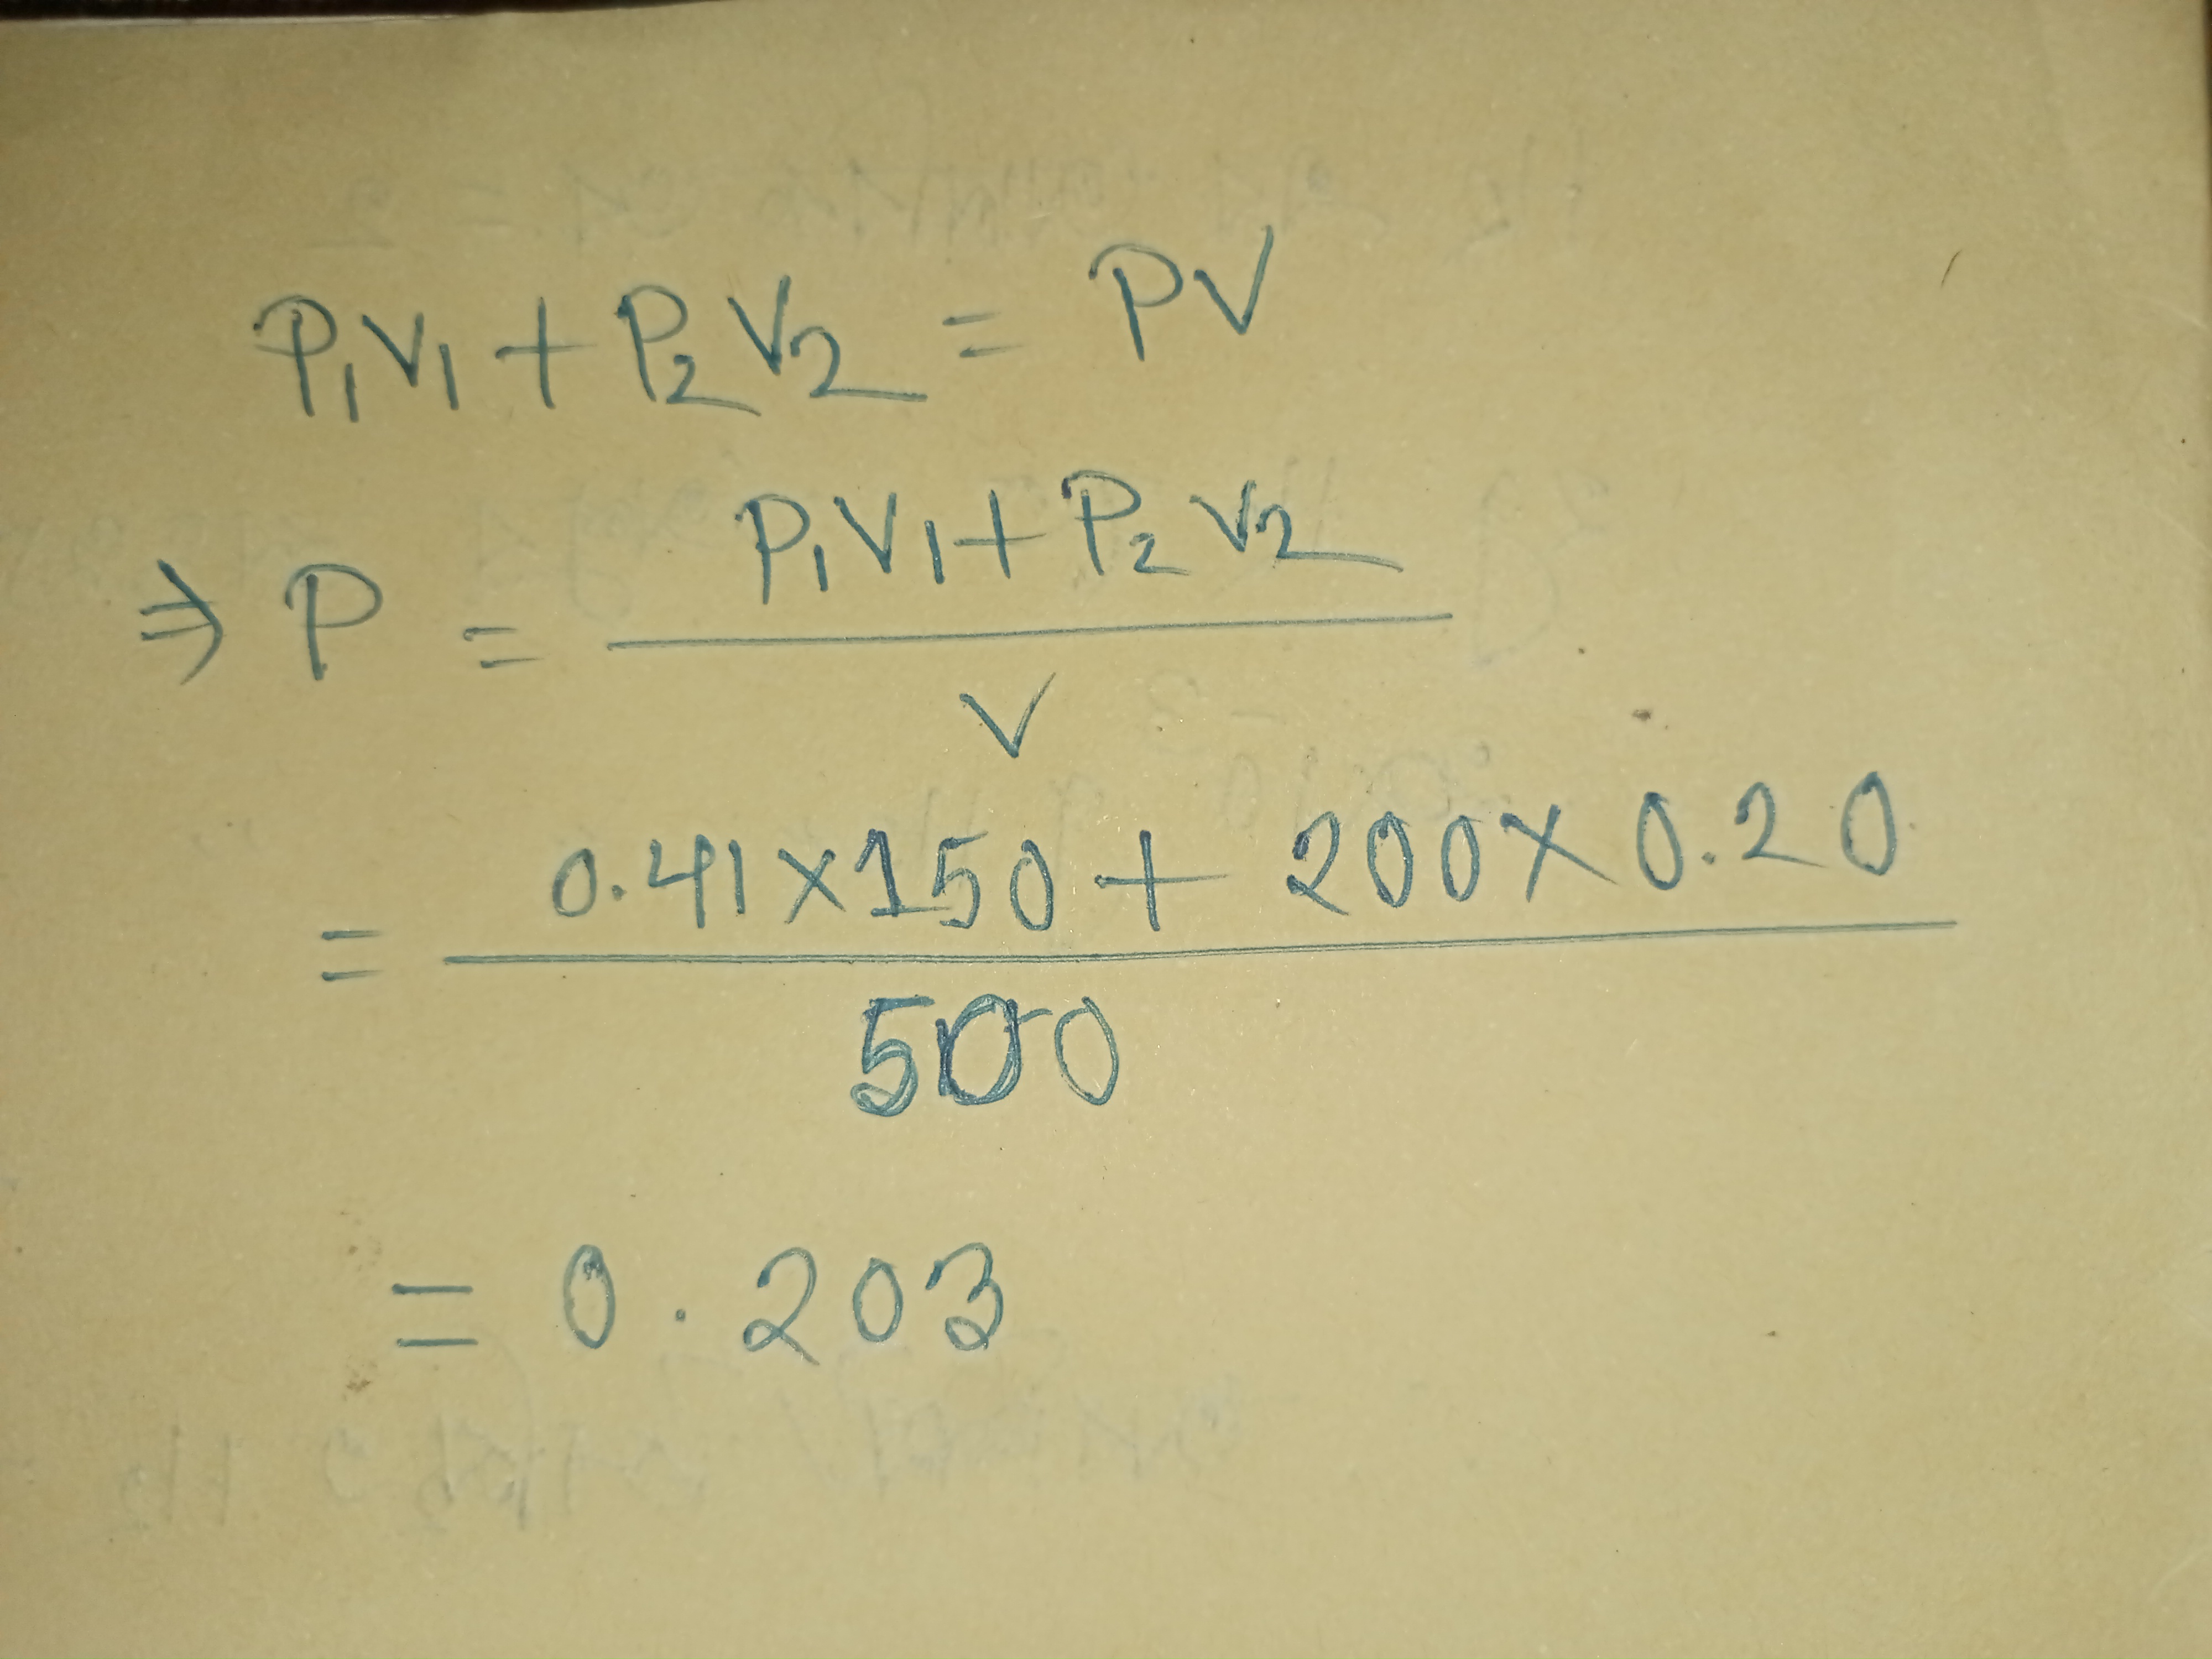 P₁V₁ + P₂V₂ = PV
⇒ P = P₁V₁ + P₂V₂
V
= 0.41 × 150 + 200 × 0.20
500
= 0.203